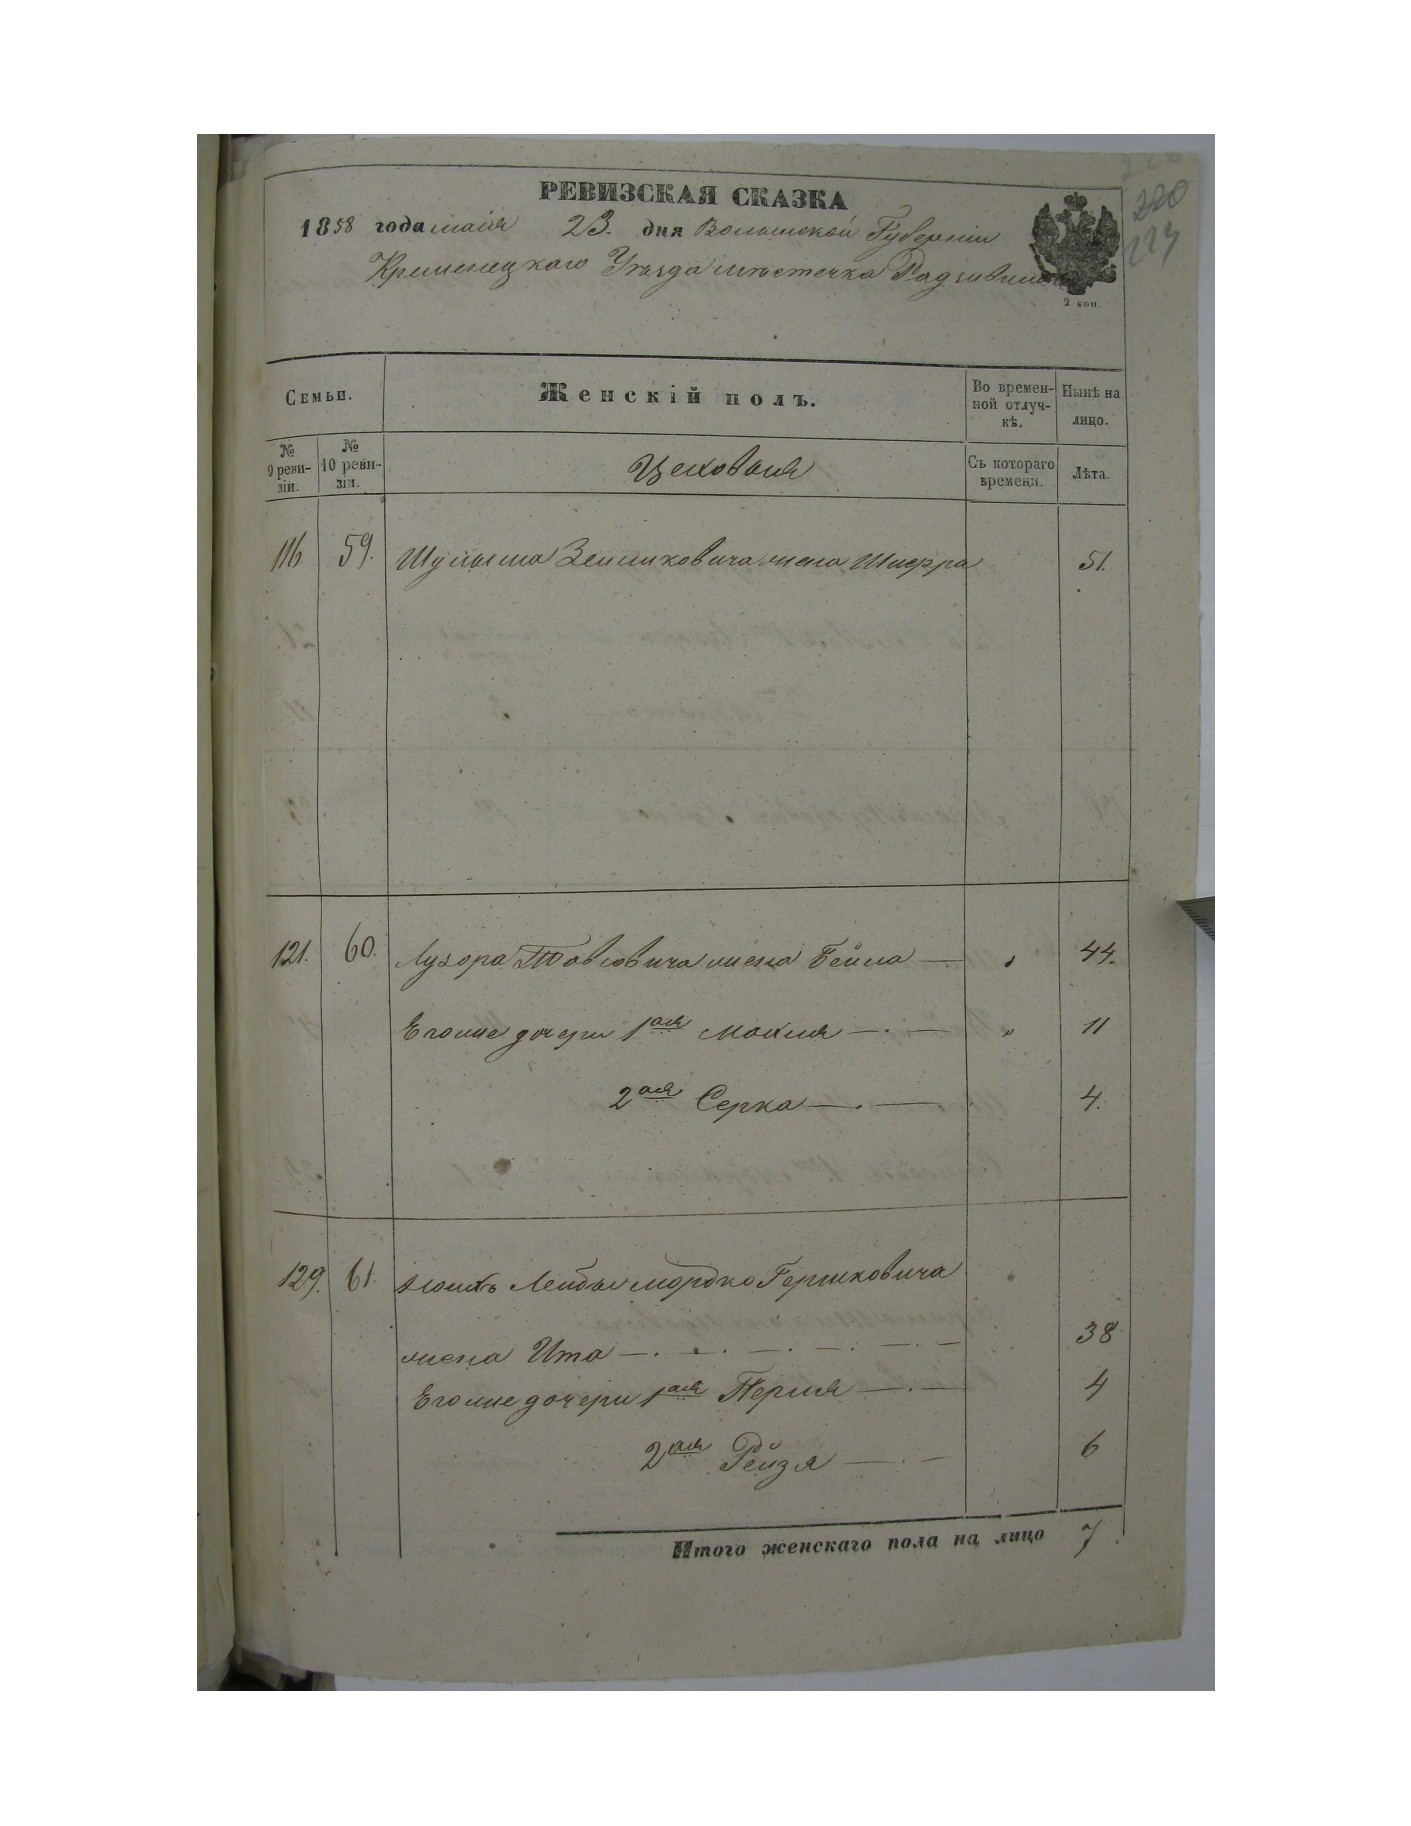 220
224
РЕВИЗСКАЯ СКАЗКА
1858 года маія 23. дня Волынской Губерніи
Кременецкаго Уѣзда мѣстечка Радзивилова
2 коп.
Семьи.
Женскій полъ.
Во времен-
ной отлуч-
кѣ.
Нынѣ на
лицо.
№
9 реви-
зіи.
№
10 реви-
зіи.
Цеховыя
Съ котораго
времени.
Лѣта.
116 59. Шулыма Зеликовича жена Шифра 51.
121. 60. Лузора Товіовича жена Бейла — „ 44.
Егоже дочери 1ая Махля — . — „ 11
2ая Серка — . — 4.
129. 61. Лейбы Мордко Гершковича
жена Ита — . — . — . — . — . — 38
Егоже дочери 1ая Перля — . — 4
2ая Рейзя — . — 6
Итого женскаго пола на лицо 7.